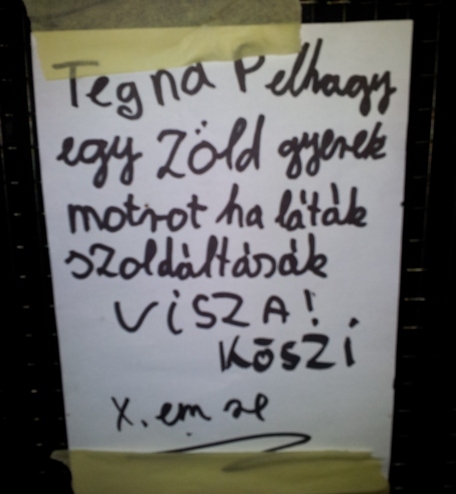 Tegna Pelhagy
egy Zöld gyerek
motrot ha láták
szoldáltásák
VISZA!
KŐSZI
X. em se